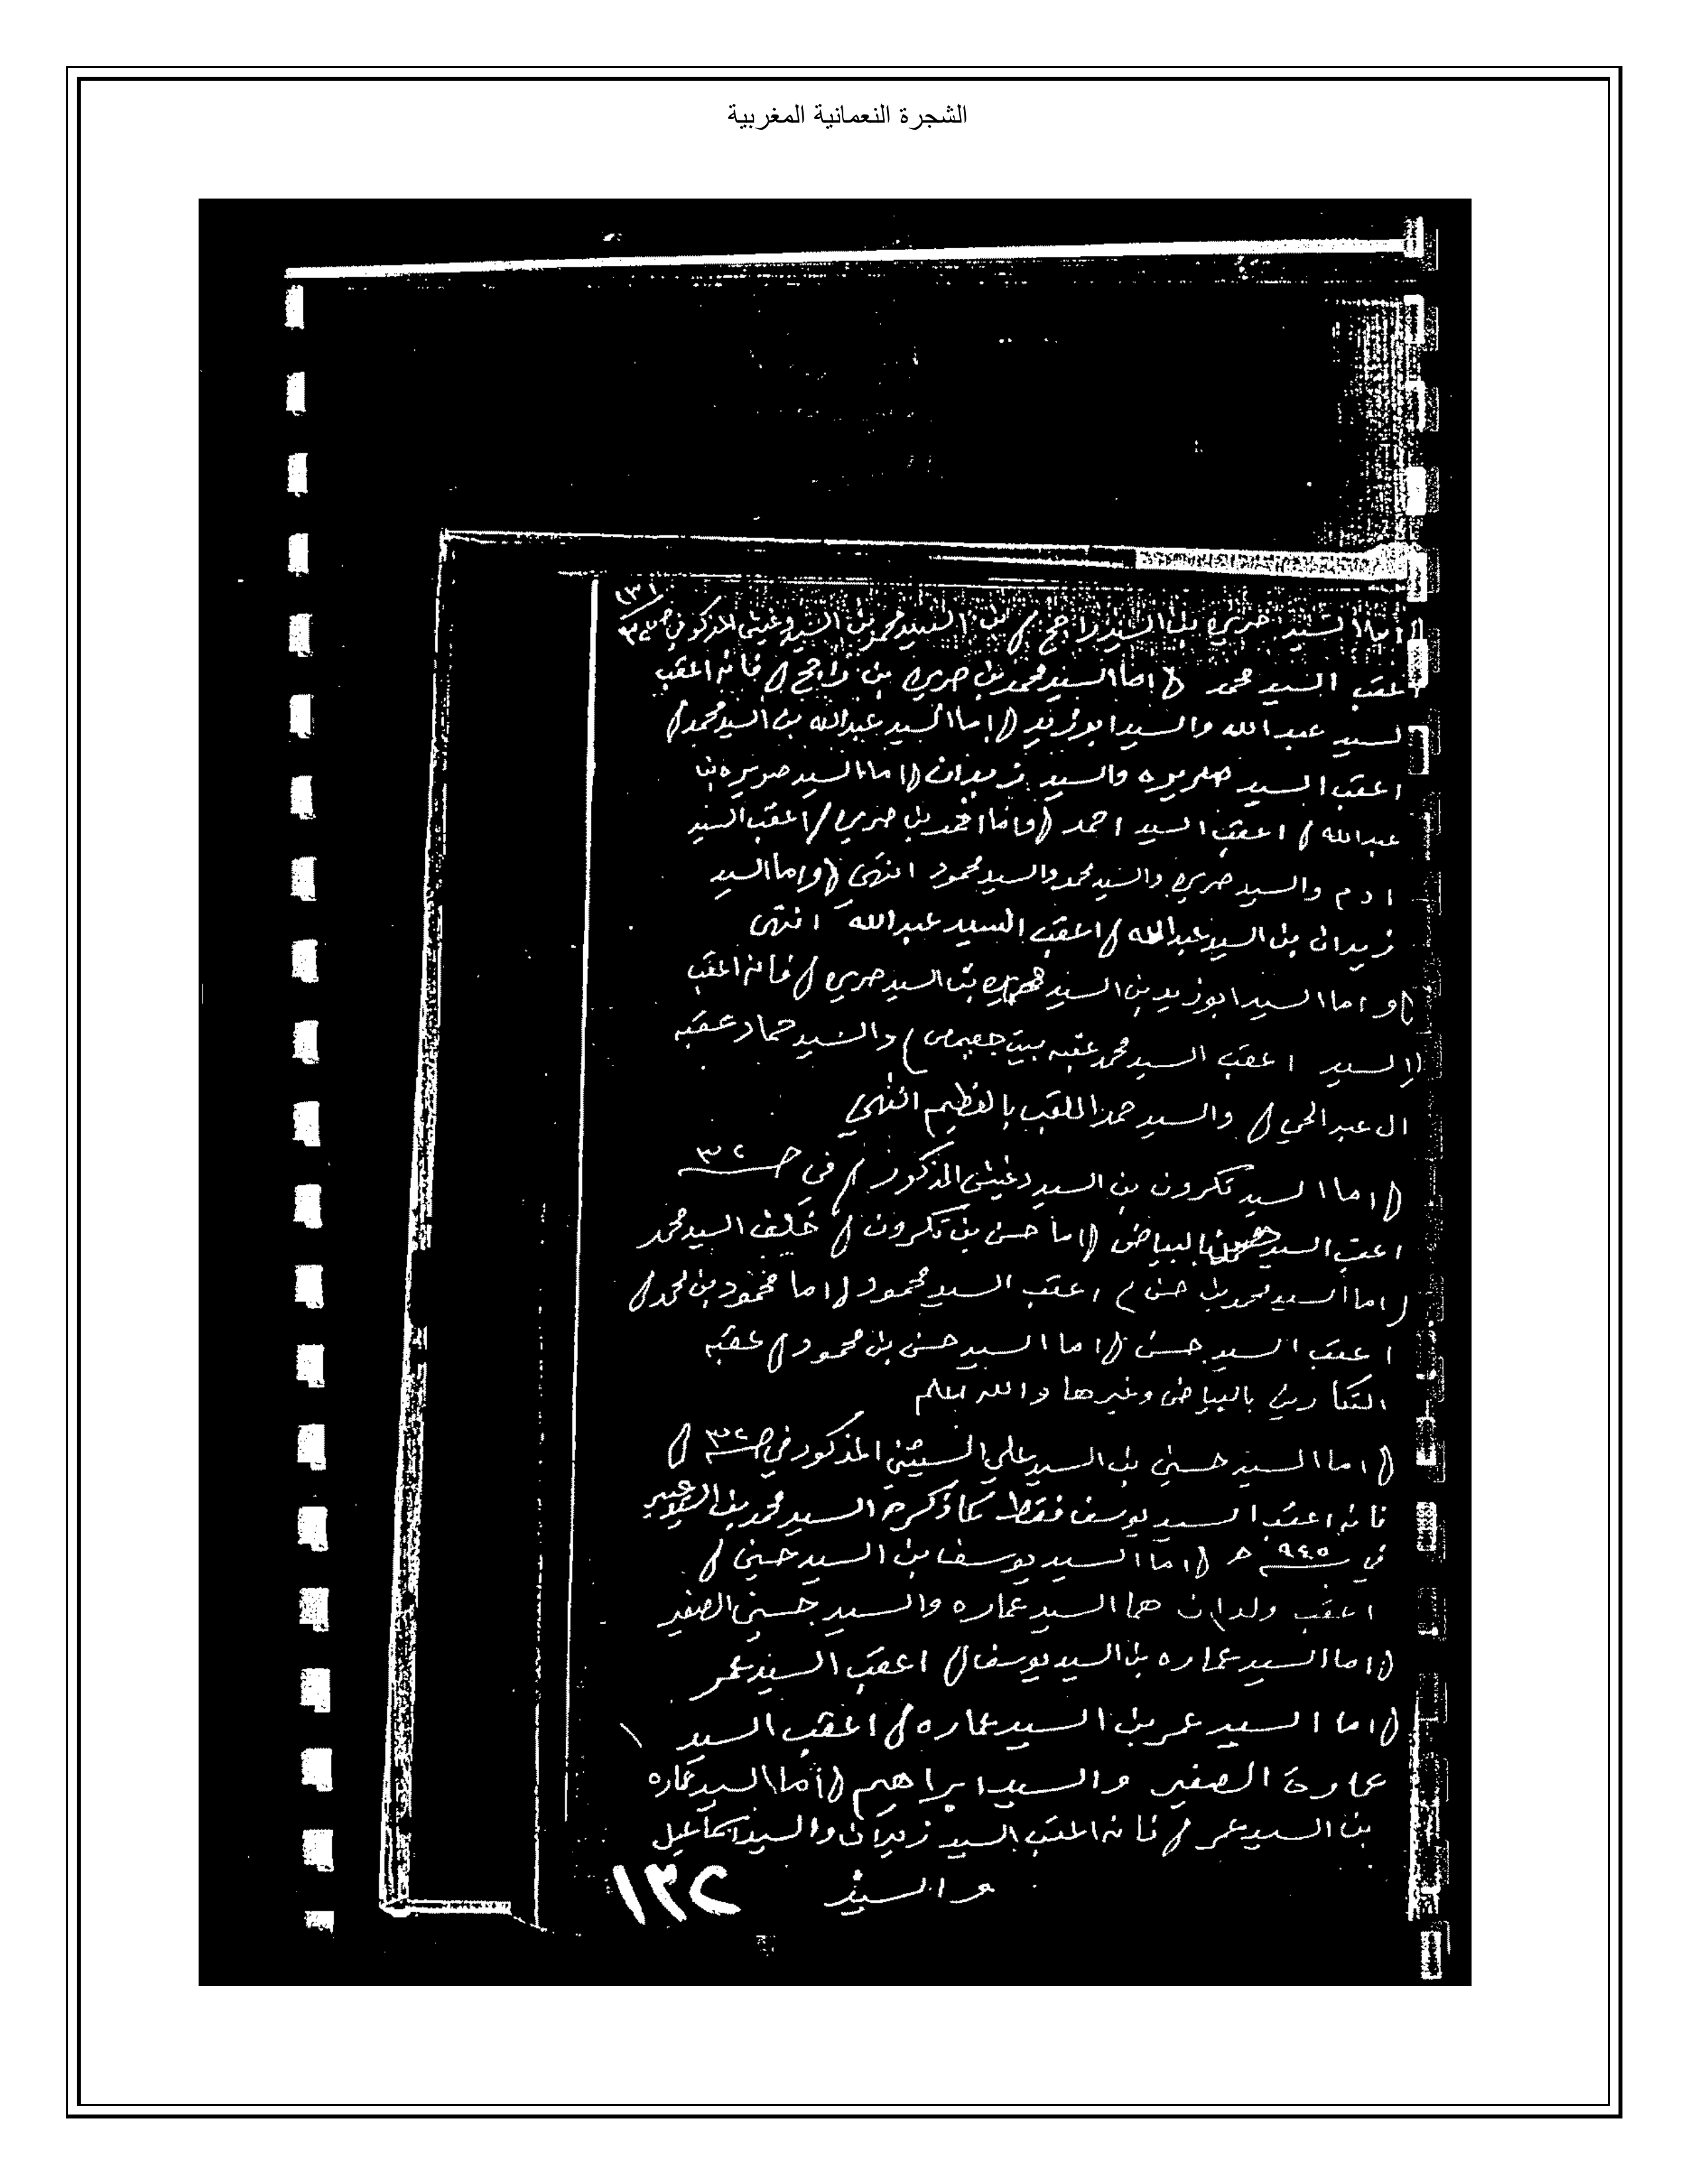 الشجرة النعمانية المغربية
١٣١
اما السيد بن السيد راجح بن السيد محمد بن السيد دغيثي المذكور في صـ ٣٢
اعقب السيد محمد اما السيد محمد بن صريره بن راجح فانه اعقب
السيد عبدالله والسيد ابوزيد اما السيد عبدالله بن السيد محمد
اعقب السيد صريره والسيد زيدان اما السيد صريره بن
عبدالله اعقب السيد احمد واما احمد بن صريره اعقب السيد
ادم والسيد صريره والسيد محمد والسيد محمود انتهى واما السيد
زيدان بن السيد عبدالله اعقب السيد عبدالله انتهى
واما السيد ابوزيد بن السيد بن السيد صريره فانه اعقب
السيد اعقب السيد محمد عقبه ببيت والسيد حماد عقبه
ال عبدالحي والسيد حمد اللقب بالفظيم انتهى
اما السيد تكرون بن السيد دغيثي المذكور في صـ ٣٢
اعقب السيد بالبياض اما حسن بن تكرون خلف السيد محمد
اما السيد محمد بن حسن اعقب السيد محمود اما محمود بن محمد
اعقب السيد حسن اما السيد حسن بن محمود عقبه
التكارين بالبياض وغيرها والله اعلم
اما السيد حسني بن السيد علي المذكور في صـ ٣٢
فانه اعقب السيد يوسف فقط كما ذكره السيد محمد بن
في ٩٤٥ هـ اما السيد يوسف بن السيد حسني
اعقب ولدان هما السيد عماره والسيد حسني الصغير
اما السيد عماره بن السيد يوسف اعقب السيد عمر
اما السيد عمر بن السيد عماره اعقب السيد
عمارة الصغير والسيد ابراهيم اما السيد عماره
بن السيد عمر فانه اعقب السيد زيدان والسيد اسماعيل
والسيد
١٣٢